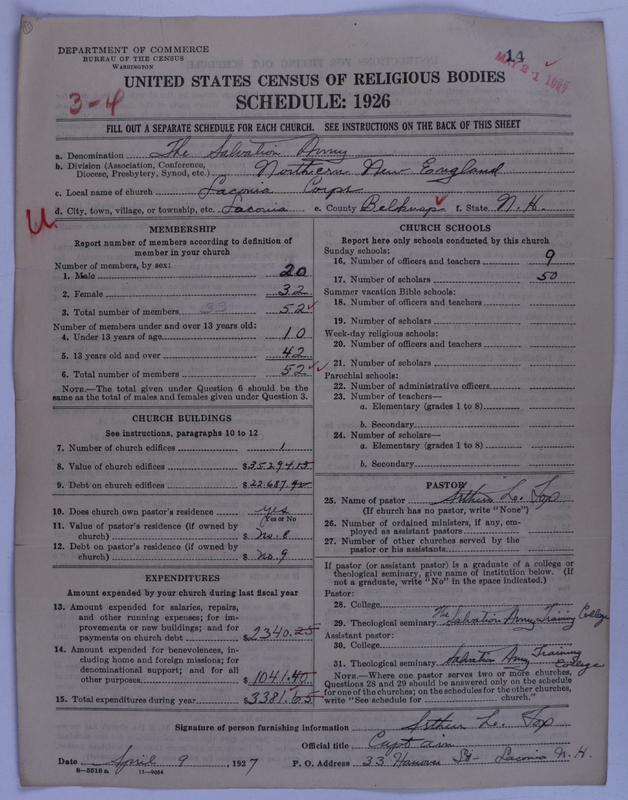 DEPARTMENT OF COMMERCE
BUREAU OF THE CENSUS
WASHINGTON
14
MAY 21 1927
UNITED STATES CENSUS OF RELIGIOUS BODIES
3-4
SCHEDULE: 1926
FILL OUT A SEPARATE SCHEDULE FOR EACH CHURCH. SEE INSTRUCTIONS ON THE BACK OF THIS SHEET
a. Denomination The Salvation Army
b. Division (Association, Conference, Diocese, Presbytery, Synod, etc.) Northern New England
c. Local name of church Laconia Corps
d. City, town, village, or township, etc. Laconia e. County Belknap f. State N. H.
MEMBERSHIP
Report number of members according to definition of
member in your church
Number of members, by sex:
1. Male 20
2. Female 32
3. Total number of members 52
Number of members under and over 13 years old:
4. Under 13 years of age 10
5. 13 years old and over 42
6. Total number of members 52
NOTE.—The total given under Question 6 should be
same as the total of males and females given under Question 3.
CHURCH BUILDINGS
See instructions, paragraphs 10 to 12
7. Number of church edifices 1
8. Value of church edifices $35294.13
9. Debt on church edifices $22.687.40
10. Does church own pastor's residence yes
Yes or No
11. Value of pastor's residence (if owned by
church) $ No. 8
12. Debt on pastor's residence (if owned by
church) $ No. 9
EXPENDITURES
Amount expended by church during last fiscal year
13. Amount expended for salaries, repairs,
and other running expenses; for im-
provements or new buildings; and for
payments on church debt $2340.25
14. Amount expended for benevolences, in-
cluding home and foreign missions; for
denominational support; and for all
other purposes $1041.40
15. Total expenditures during year $3381.65
CHURCH SCHOOLS
Report here only schools conducted by this church
Sunday schools:
16. Number of officers and teachers 9
17. Number of scholars 50
Summer vacation Bible schools:
18. Number of officers and teachers
19. Number of scholars
Week-day religious schools:
20. Number of officers and teachers
21. Number of scholars
Parochial schools:
22. Number of administrative officers
23. Number of teachers—
a. Elementary (grades 1 to 8)
b. Secondary
24. Number of scholars—
a. Elementary (grades 1 to 8)
b. Secondary
PASTOR
25. Name of pastor Arthur L. Fox
(If church has no pastor, write "None")
26. Number of ordained ministers, if any, em-
ployed as assistant pastors
27. Number of other churches served by the
pastor or his assistants
If pastor (or assistant pastor) is a graduate of a college or
theological seminary, give name of institution below. (If
not a graduate, write "No" in the space indicated.)
Pastor:
28. College
29. Theological seminary The Salvation Army Training College
Assistant pastor:
30. College
31. Theological seminary Salvation Army Training College
NOTE.—Where one pastor serves two or more churches,
Questions 28 and 29 should be answered only on the schedule
for one of the churches; on the schedules for the other churches,
write "See schedule for church."
Signature of person furnishing information Arthur L. Fox
Official title Captain
Date April 9, 1927 P. O. Address 33 Hanover St- Laconia N. H.
8-5518a 11-9054